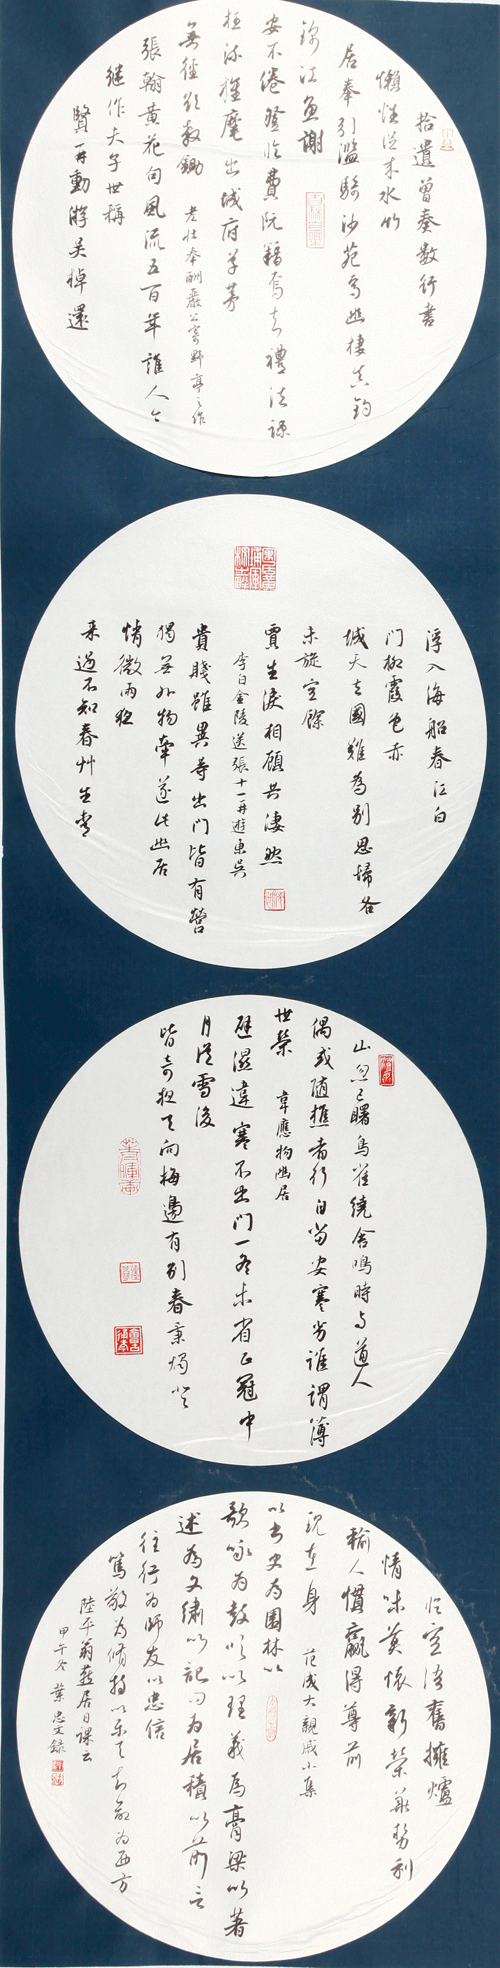 拾遺曾奏數行書
懶性從来水竹
居奉引濫騎沙苑馬幽棲真釣
錦江魚謝
安不倦登臨費阮籍焉知禮法疎
枉沐旌麾出城府草茅
無徑欲教鋤 老杜奉酬嚴公寄野亭之作
張翰黄花句風流五百年誰人今
继作夫子世稱
賢再動游吴棹還
浮入海船春江白
門柳霞色赤
城天去國難為别思歸各
未旋空餘
賈生淚相顧共凄然
李白金陵送張十一再遊東吴
貴賤雖異等出門皆有營
獨無外物牽遂此幽居
情微雨夜
来過不知春艸生青
山忽已曙鳥雀繞舍鳴時与道人
偶或随樵者行自當安蹇劣誰謂薄
世榮 韋應物幽居
避濕違寒不出門一冬未省正冠巾
月從雪後
皆奇夜天向梅邊有别春秉燭登
臨空話舊擁爐
情味莫懷新榮華勢利
輸人慣贏得尊前
現在身 范成大親戚小集
以書史為園林以
歌咏為鼓吹以理義為膏粱以著
述為文繡以記问為居積以前言
往行為師友以忠信
篤敬為脩持以樂天知命為西方
陸平翁燕居日課云
甲午冬葉忠文録